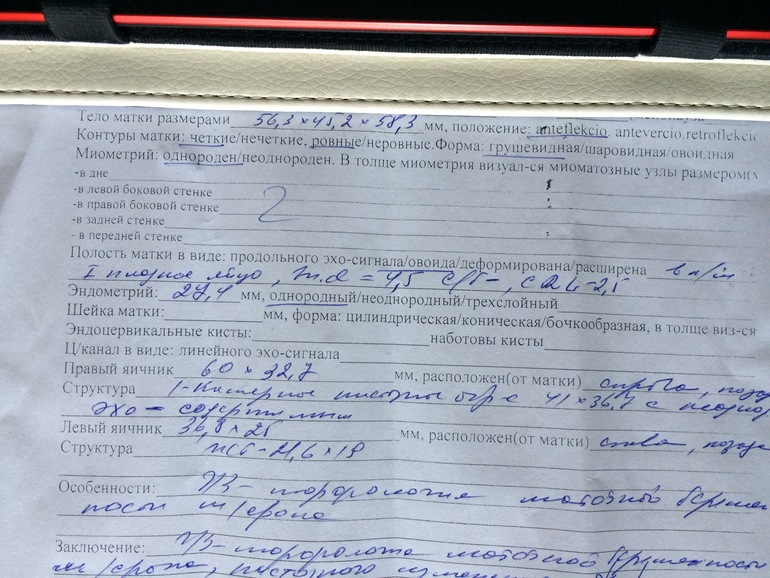 Тело матки размерами 56,3 × 45,2 × 58,3 мм, положение: anteflekcio. antevercio.retroflekcio
Контуры матки: четкие/нечеткие, ровные/неровные.Форма: грушевидная/шаровидная/овоидная
Миометрий: однороден/неоднороден. В толще миометрия визуал-ся миоматозные узлы размером(м
-в дне
-в левой боковой стенке
-в правой боковой стенке
-в задней стенке
- в передней стенке
Полость матки в виде: продольного эхо-сигнала/овоида/деформирована/расширена в п/м
I плодное яйцо, m.d = 4,5
Эндометрий: 27,4 мм, однородный/неоднородный/трехслойный
Шейка матки: мм, форма: цилиндрическая/коническая/бочкообразная, в толще виз-ся
Эндоцервикальные кисты: наботовы кисты
Ц/канал в виде: линейного эхо-сигнала
Правый яичник 60 × 32,7 мм, расположен(от матки) справа,
Структура 1-камерное 41 × 36,7 с
эхо - содержимым
Левый яичник 36,8 × 25 мм, расположен(от матки) слева,
Структура 21,6 × 19
Особенности: УЗ-морфология маточной беремен
ности м/срока
Заключение: УЗ-морфология маточной беременности
м/срока,